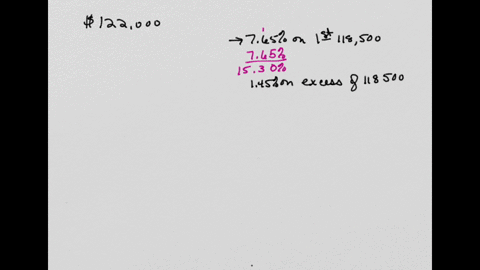 $122,000
→ 7.65% on 1st 118,500
7.65%
15.30%
1.45% on excess of 118500